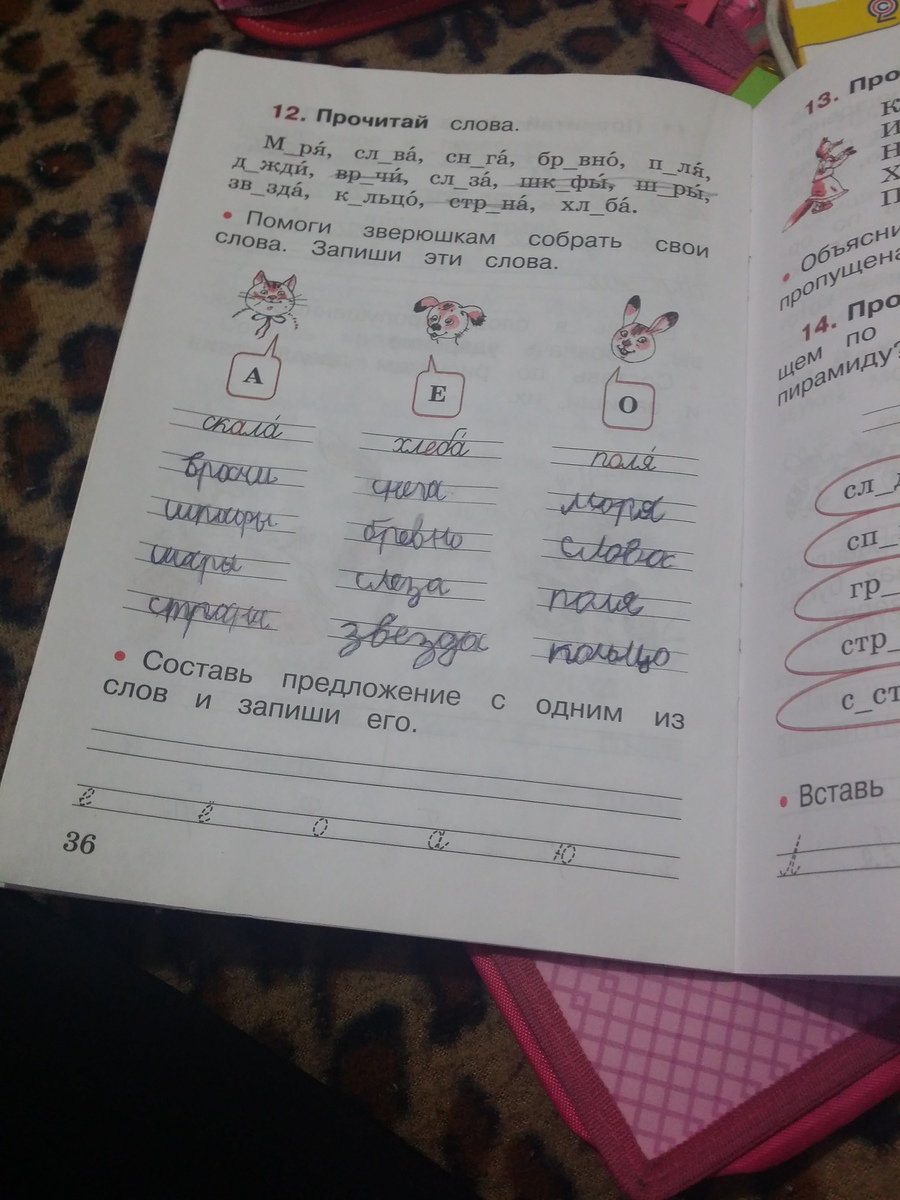 12. Прочитай слова.
М_ря́, сл_ва́, сн_га́, бр_вно́, п_ля́,
д_жди́, вр_чи́, сл_за́, шк_фы́, ш_ры́,
зв_зда́, к_льцо́, стр_на́, хл_ба́.
• Помоги зверюшкам собрать свои
слова. Запиши эти слова.
А
Е
О
скала́ хлеба́ поля́
врачи снега моря
бревно слова
шары слеза поля
страна звезда кольцо
• Составь предложение с одним из
слов и запиши его.
е ё о а ю
36
13.
К
И
Н
Х
П
• Объясни
пропущена
14.
щем по
пирамиду?
сл_
сп_
гр_
стр_
с_ст
• Вставь